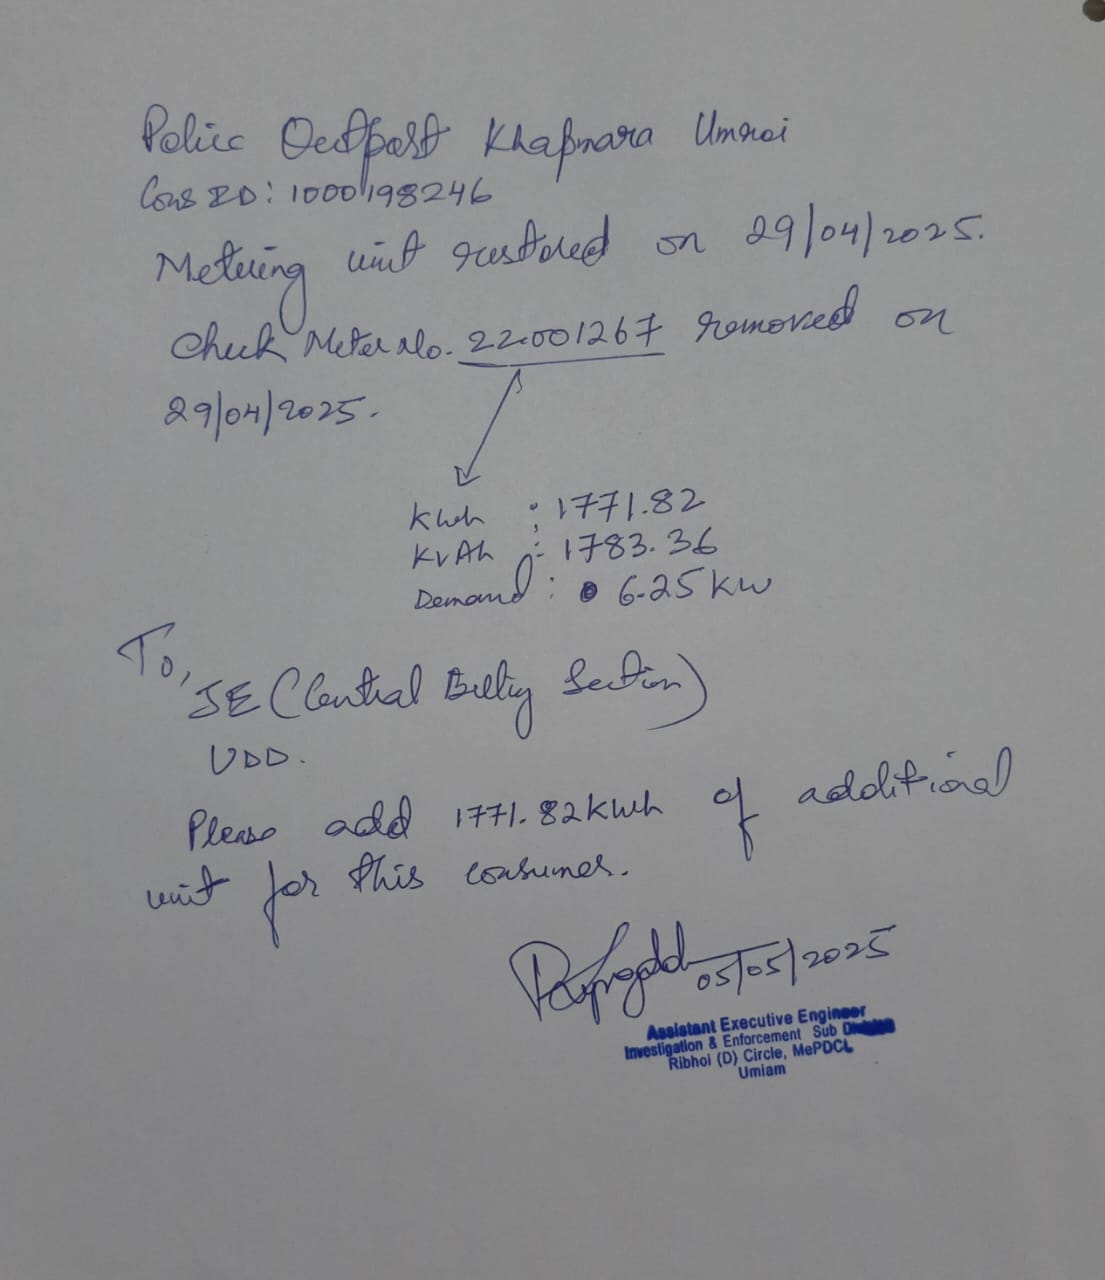 Police Outpost Khapmara Umroi
Cons ID: 1000198246
Metering unit restored on 29/04/2025.
Check Meter No. 22001267 removed on
29/04/2025.
Kwh : 1771.82
KvAh : 1783.36
Demand : 6.25 kw
To,
JE (Central Billing Section)
UDD.
Please add 1771.82 kwh of additional
unit for this consumer.
05/05/2025
Assistant Executive Engineer
Investigation & Enforcement Sub Division
Ribhoi (D) Circle, MePDCL
Umiam